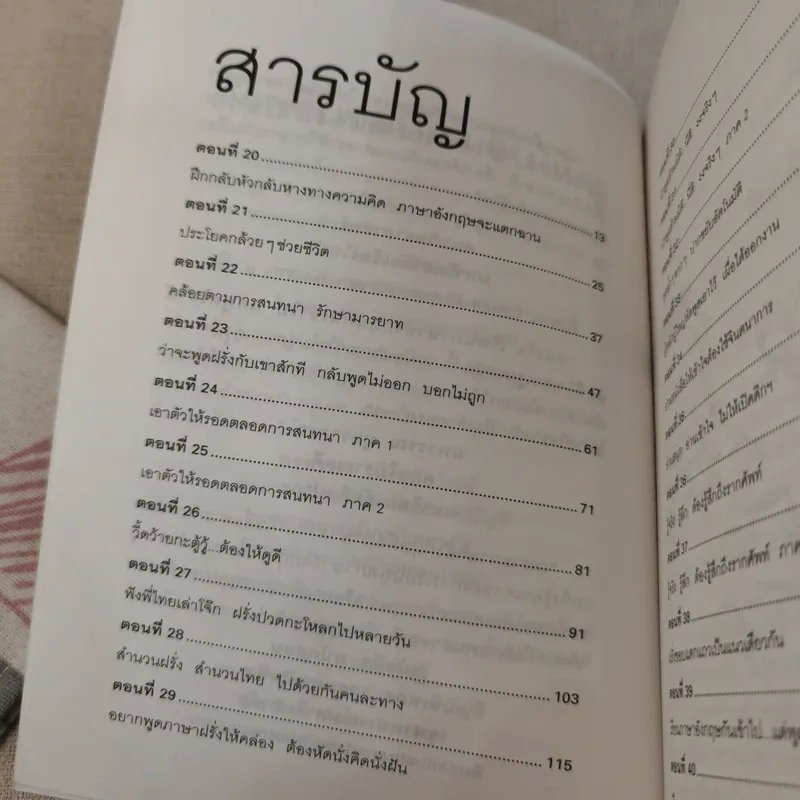 สารบัญ
ตอนที่ 20 13
ฝึกกลับหัวกลับหางทางความคิด ภาษาอังกฤษจะแตกฉาน
ตอนที่ 21 25
ประโยคกล้วยๆ ช่วยชีวิต
ตอนที่ 22 37
คล้อยตามการสนทนา รักษามารยาท
ตอนที่ 23 47
ว่าจะพูดฝรั่งกับเขาสักที กลับพูดไม่ออก บอกไม่ถูก
ตอนที่ 24 61
เอาตัวให้รอดตลอดการสนทนา ภาค 1
ตอนที่ 25 71
เอาตัวให้รอดตลอดการสนทนา ภาค 2
ตอนที่ 26 81
วี้ดว้ายกะตู้วู้...ต้องให้ดูดี
ตอนที่ 27 91
ฟังพี่ไทยเล่าโจ๊ก ฝรั่งปวดกะโหลกไปหลายวัน
ตอนที่ 28 103
สำนวนฝรั่ง สำนวนไทย ไปด้วยกันคนละทาง
ตอนที่ 29 115
อยากพูดภาษาฝรั่งให้คล่อง ต้องหัดนั่งคิดนั่งฝัน
ภาค 2
เพื่อให้ออกงาน
อ่านเข้าใจ ไม่ให้เปิดดิกฯ
ต้องรู้สึกถึงรากศัพท์
ตอนที่ 37
รู้สึก ต้องรู้สึกถึงรากศัพท์ ภาค
ตอนที่ 38
เป็นแนวเดียวกัน
ตอนที่ 39
เรียนภาษาอังกฤษกันเข้าไป...แต่พูด
ตอนที่ 40